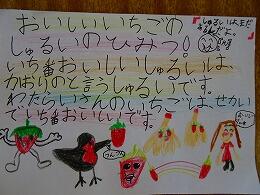 おいしいいちごの
しゅるいのひみつ!
いち番おいしいしゅるいは、
かおりのと言うしゅるいです。
わたらいさんのいちごは、せかい
でいち番おいしいです。
しゅるいは、まだ